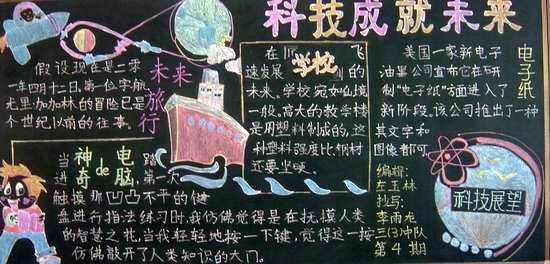 科技成就未来
未来旅行
假设现在是二零
一年四月十二日,第一位宇航
尤里加加林的冒险已是
个世纪以前的往事。
学校
在 飞
速发展 的
未来,学校宛如仙境
一般。高大的教学楼
是用塑料制成的,这
种塑料强度比钢材
还要坚硬。
电子纸
美国一家新电子
油墨公司宣布它在研
制“电子纸”方面进入了
新阶段。该公司推出了一种
其文字和
图像都可
神奇de电脑
当 路
进 ,第一次
触摸那凹凸不平的键
盘进行指法练习时,我仿佛觉得是在抚摸人类
的智慧之花,当我轻轻地按一下键,觉得这一按
仿佛敲开了人类知识的大门。
编辑:
左玉林
抄写:
李雨龙
三(3)中队
第4期
科技展望